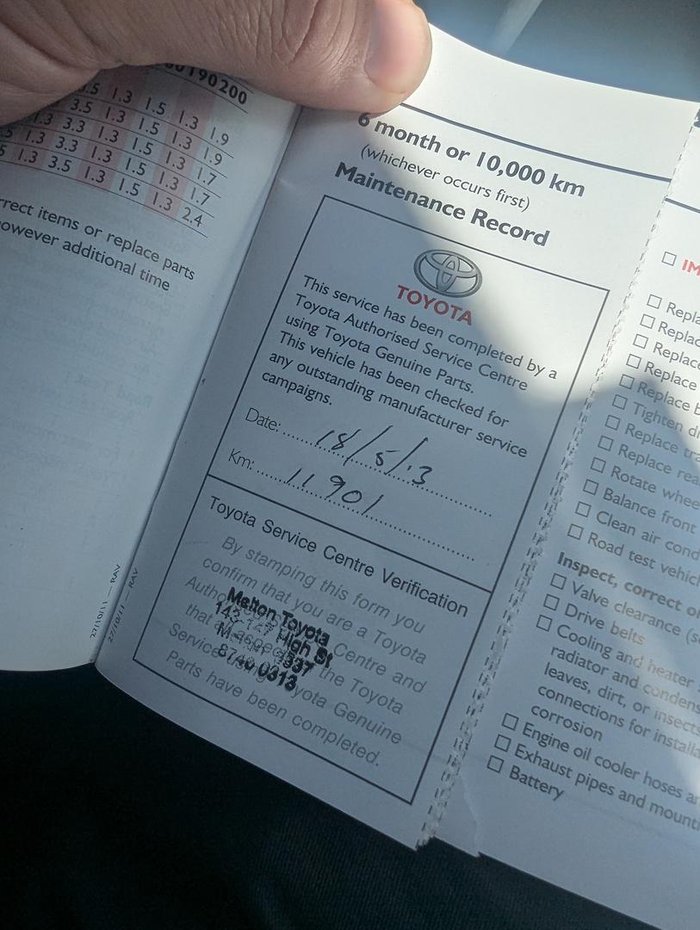 190200
1.3 1.5 1.3 1.9
3.5 1.3 1.5 1.3 1.9
1.3 3.3 1.3 1.5 1.3 1.7
1.3 3.3 1.3 1.5 1.3 1.7
1.3 3.5 1.3 1.5 1.3 2.4
rrect items or replace parts
owever additional time
27/10/11 — RAV
27/10/11 RAV
6 month or 10,000 km
(whichever occurs first)
Maintenance Record
TOYOTA
This service has been completed by a
Toyota Authorised Service Centre
using Toyota Genuine Parts.
This vehicle has been checked for
any outstanding manufacturer service
campaigns.
Date: 18/5/13
Km: 11901
Toyota Service Centre Verification
By stamping this form you
confirm that you are a Toyota
Centre and
that the Toyota
Service Toyota Genuine
Parts have been completed.
Melton Toyota
High St
3337
8746 0313
IM
Repla
Replac
Replace
Replace
Replace b
Tighten dr
Replace tra
Replace rea
Rotate whee
Balance fron
Clean air con
Road test vehic
Inspect, correct o
Valve clearance (s
Drive belts
Cooling and heater
radiator and condens
leaves, dirt, or insects
connections for instal
corrosion
Engine oil cooler hoses a
Exhaust pipes and mount
Battery